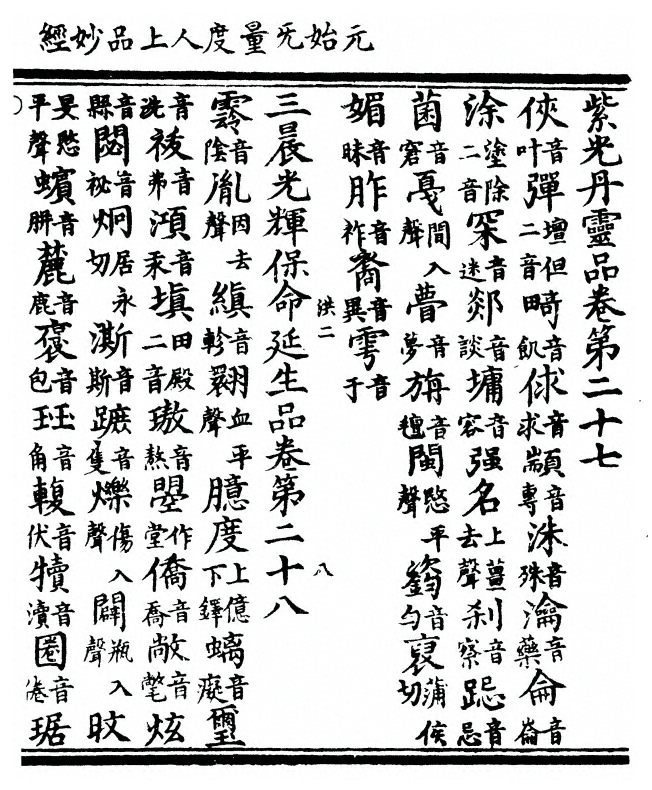 元始无量度人上品妙經
紫光丹靈品卷第二十七
俠音叶彈壇但二音畸音飢俅音求顓音專洙音殊瀹音藥侖音崙
涂塗除二音罙音迷郯音談墉音容强名上薑去聲刹音察跽音忌
菌音窘戛間入聲瞢音夢旃音氊閩愍平聲篘音勻裒蒲侯切
媚音昧胙音祚裔音異雩音于
洪二
三晨光輝保命延生品卷第二十八
八
霒音陰胤因去聲縝音軫翾血平聲臆度上億下鐸螭音癡璽
音洗袚音弗澒音汞塡田殿二音璈音熬瞾作堂僑音喬敞音氅炫
音縣閟音祕炯居永切澌音斯蹠音隻爍傷入聲闢瓶入聲旼
旻愍平聲蠙音駢麓音鹿褒音包玨音角輹音伏犢音瀆圈音倦琚